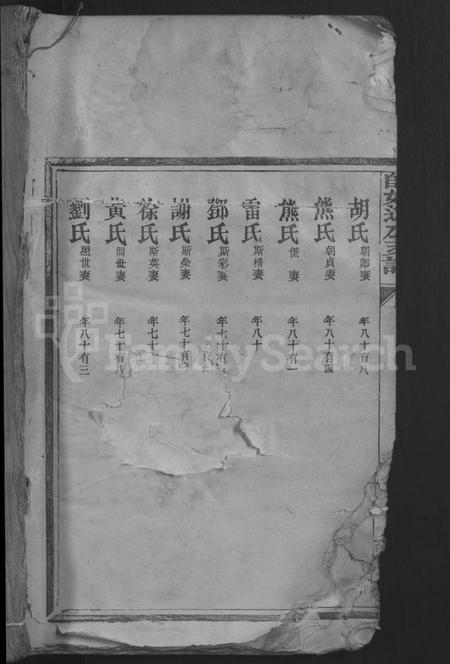 胡氏 朝卿妻 年八十有八
熊氏 朝貞妻 年八十有四
熊氏 傑妻 年八十有一
雷氏 斯楷妻 年八十
鄧氏 斯彩妻 年七十有
謝氏 斯榮妻 年七十有
徐氏 斯英妻 年七十
黃氏 開世妻 年七十有八
劉氏 照世妻 年八十有三
FamilySearch